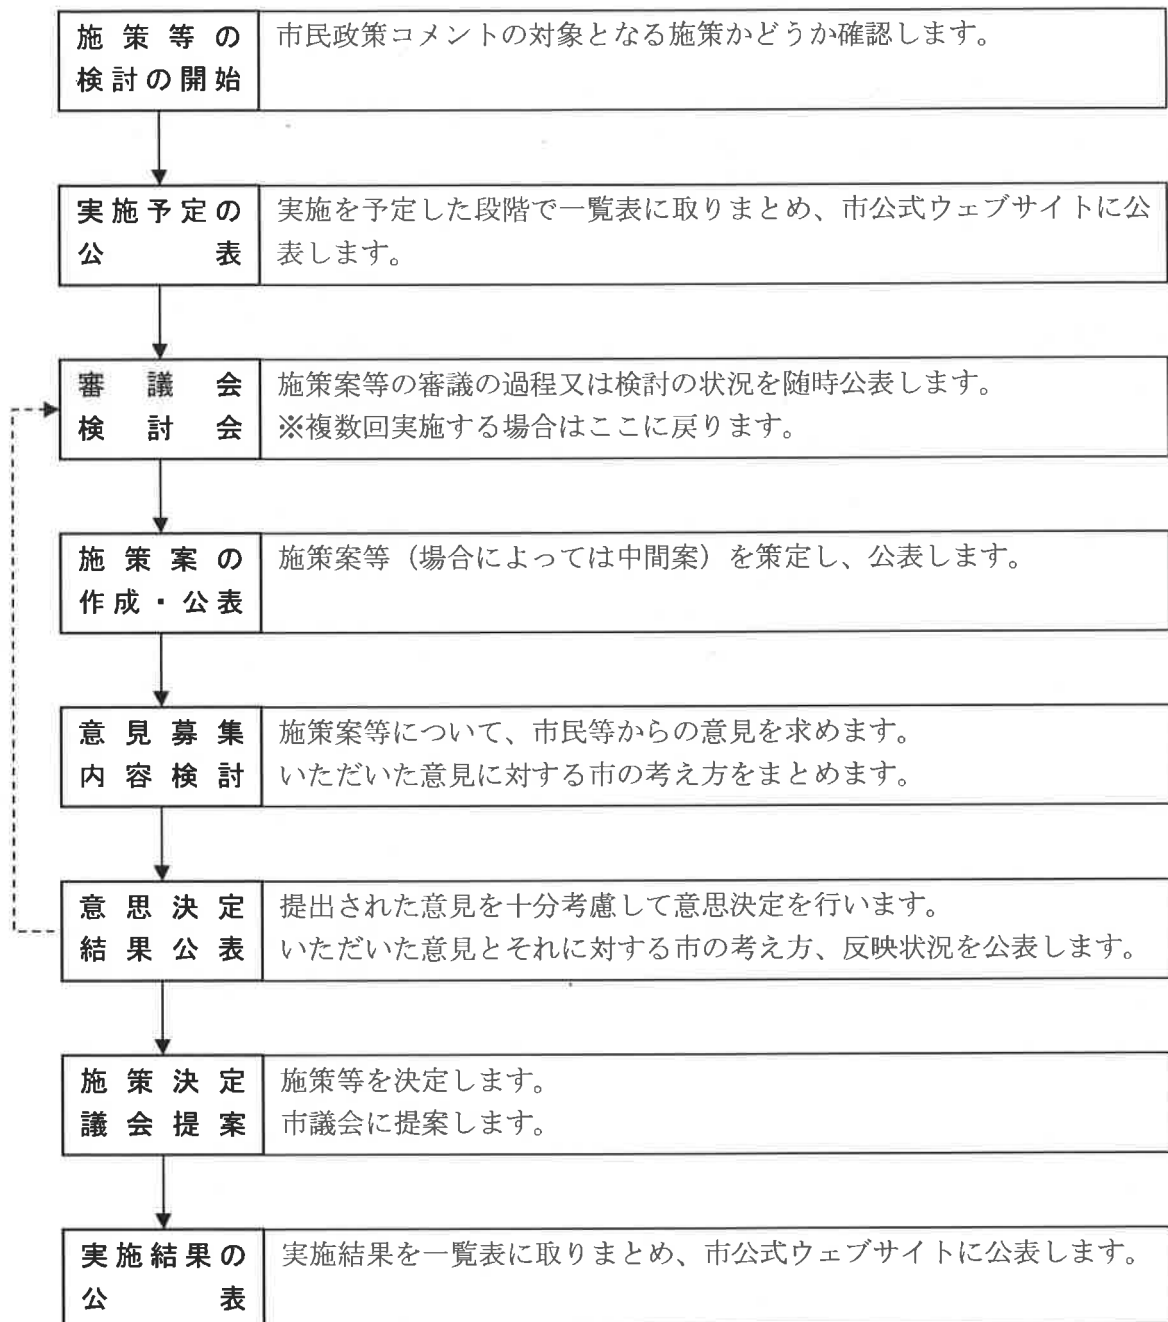 施策等の
検討の開始
市民政策コメントの対象となる施策かどうか確認します。
実施予定の
公表
実施を予定した段階で一覧表に取りまとめ、市公式ウェブサイトに公
表します。
審議会
検討会
施策案等の審議の過程又は検討の状況を随時公表します。
※複数回実施する場合はここに戻ります。
施策案の
作成・公表
施策案等（場合によっては中間案）を策定し、公表します。
意見募集
内容検討
施策案等について、市民等からの意見を求めます。
いただいた意見に対する市の考え方をまとめます。
意思決定
結果公表
提出された意見を十分考慮して意思決定を行います。
いただいた意見とそれに対する市の考え方、反映状況を公表します。
施策決定
議会提案
施策等を決定します。
市議会に提案します。
実施結果の
公表
実施結果を一覧表に取りまとめ、市公式ウェブサイトに公表します。